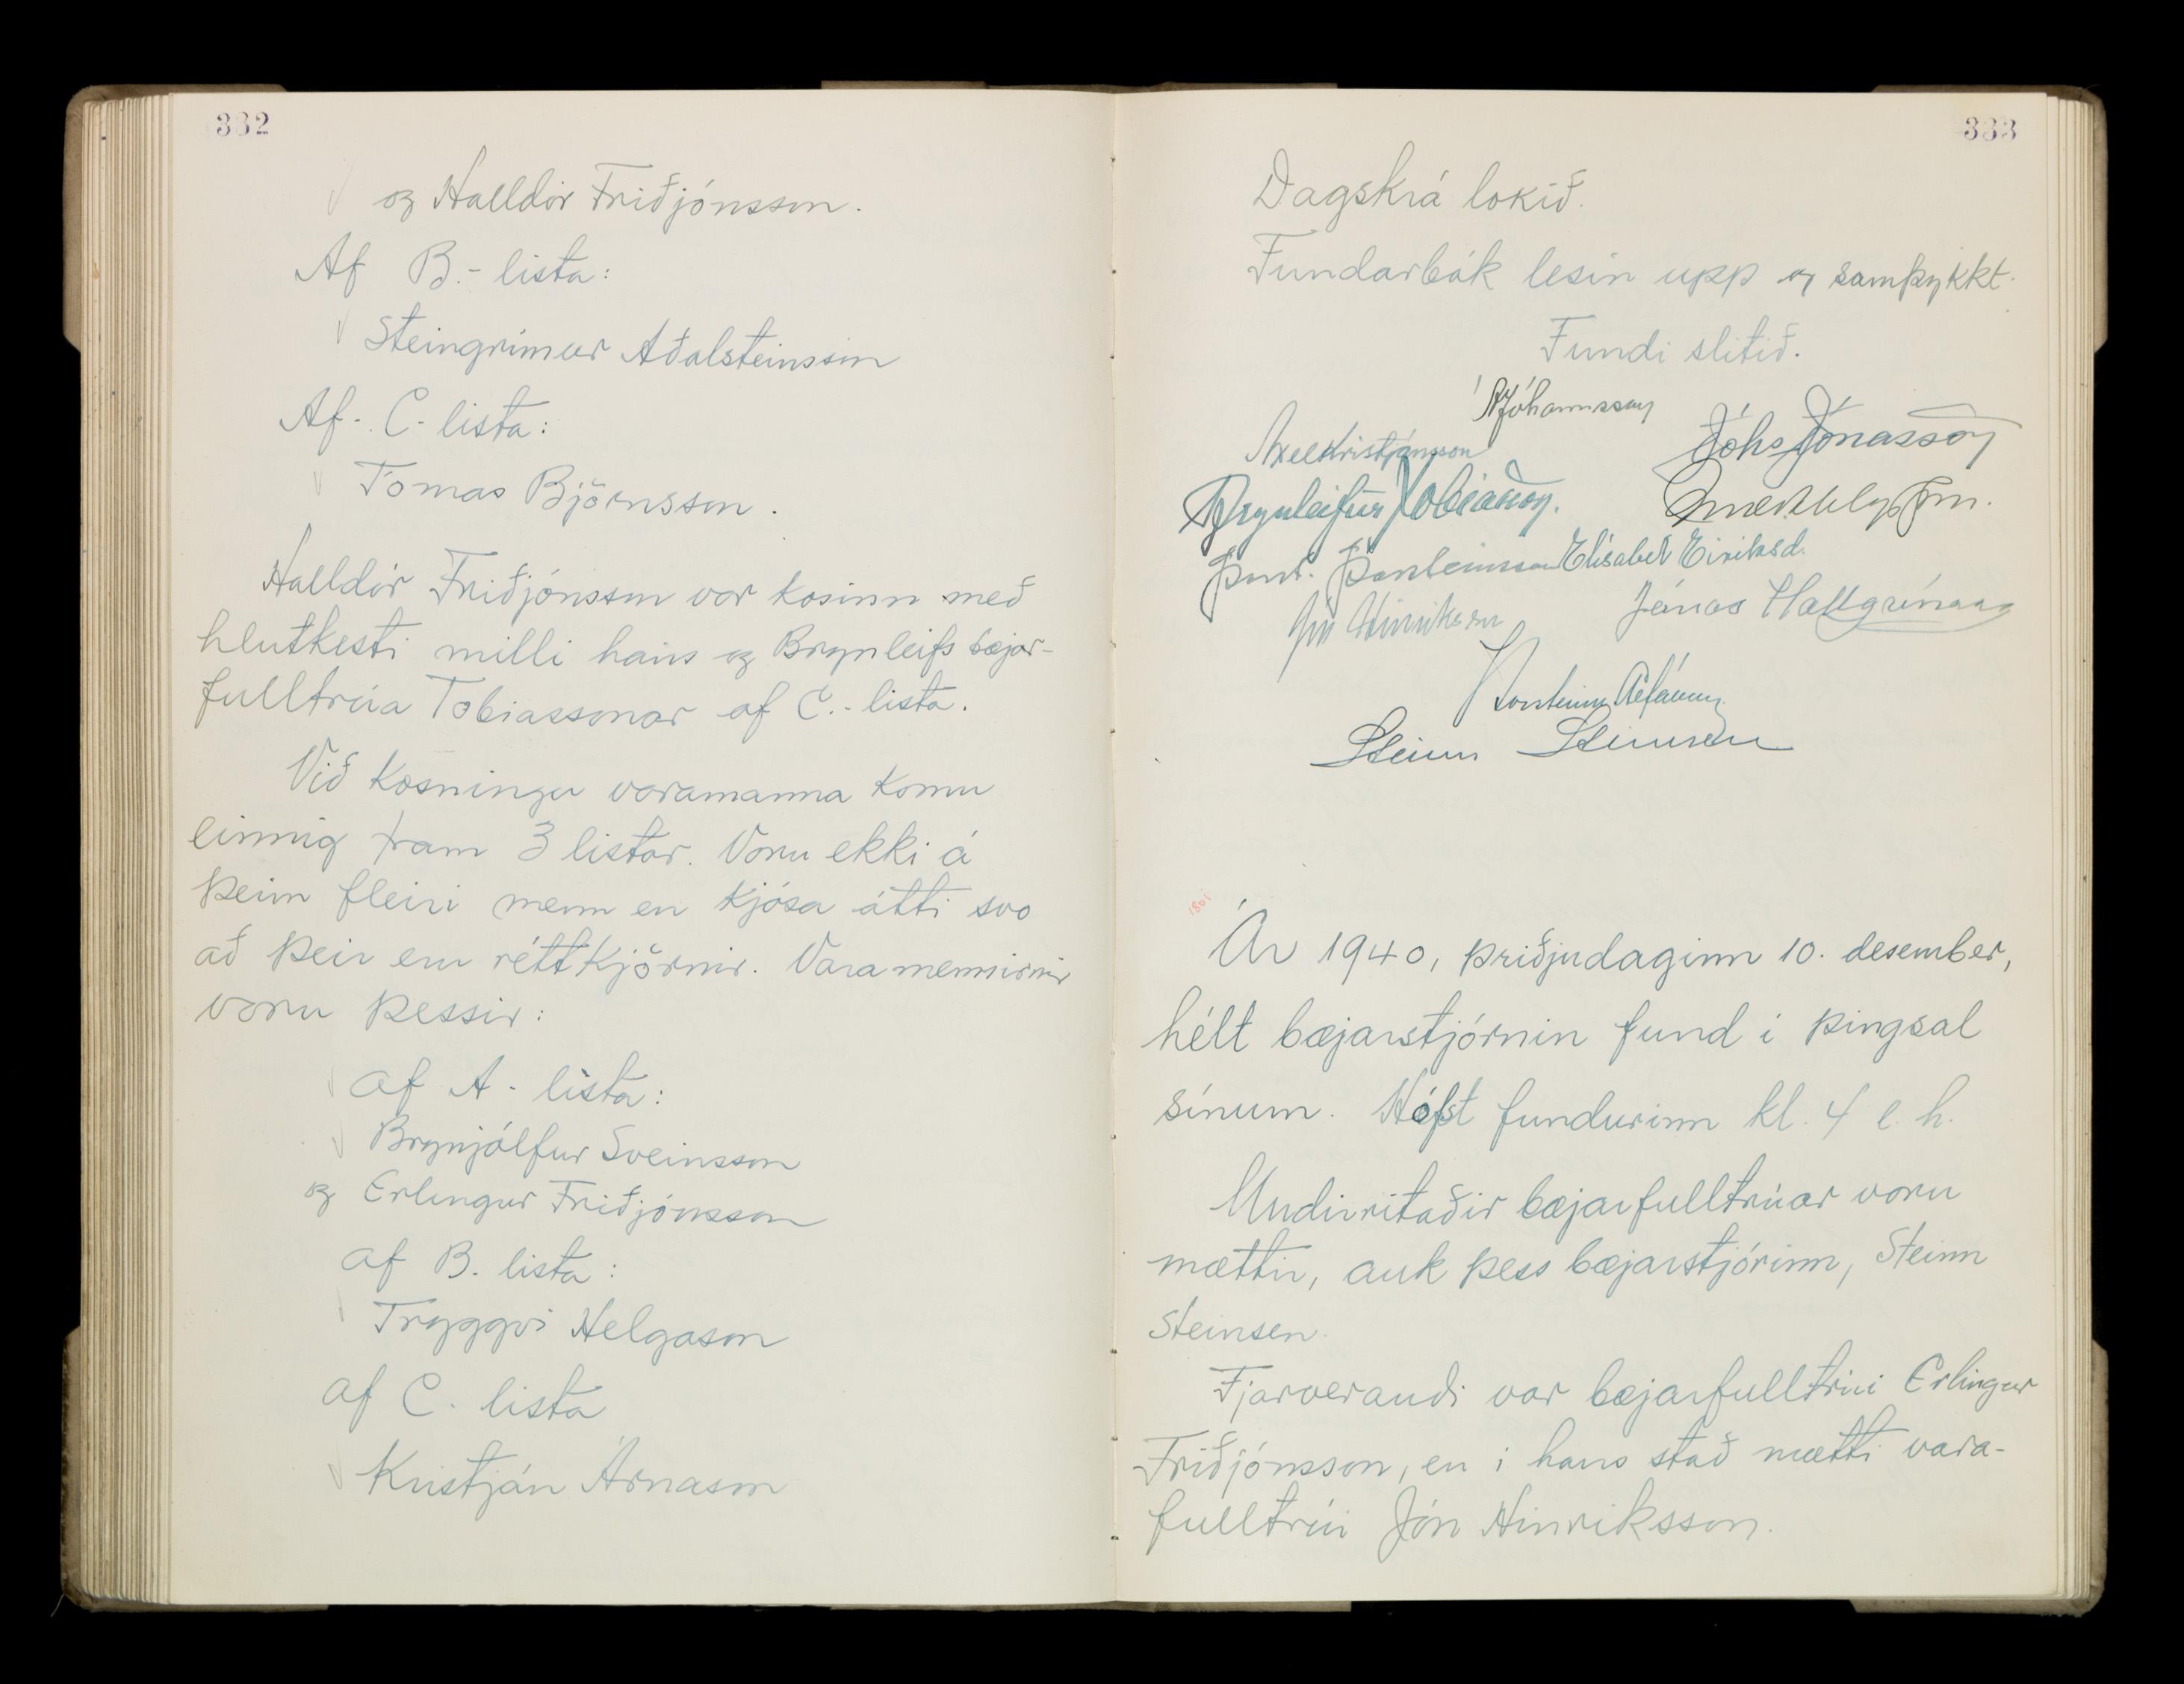 332
og Halldór Friðjónsson.
Af B.- lista:
Steingrímur Aðalsteinsson
Af - C - lista:
Tómas Björnsson.
Halldór Friðjónsson var kosinn með
hlutkesti milli hans og Brynleifs bæjar-
fulltrúa Tobiassonar af C.- lista.
Við kosningu varamanna komu
einnig fram 3 listar. Voru ekki á
þeim fleiri menn en kjósa átti svo
að þeir eru réttkjörnir. Varamennirnir
voru þessir:
af A - lista:
Brynjólfur Sveinsson
og Erlingur Friðjónsson
af B. lista:
Tryggvi Helgason
af C. lista
Kristján Árnason
333
Dagskrá lokið.
Fundarbók lesin upp og samþykkt.
Fundi slitið.
Á Jóhannsson
Axel Kristjánsson
Jóhs Jónasson
Brynleifur Tobiasson.
Þorst. Þorsteinsson
Elísabet Eiríksd.
Jón Hinriksson
Jónas Hallgríms
Steinn Steinsen
1801
Ár 1940, þriðjudaginn 10. desember,
hélt bæjarstjórnin fund í þingsal
sínum. Hófst fundurinn kl. 4 e. h.
Undirritaðir bæjarfulltrúar voru
mættir, auk þess bæjarstjórinn, Steinn
Steinsen.
Fjarverandi var bæjarfulltrúi Erlingur
Friðjónsson, en í hans stað mætti vara-
fulltrúi Jón Hinriksson.